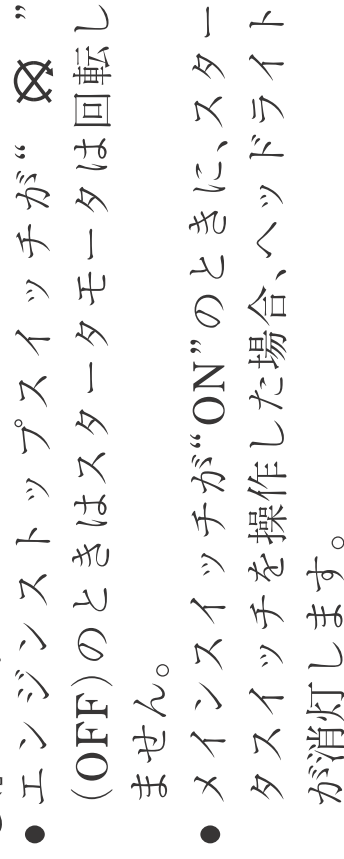 ●エンジンストップスイッチが“ ”
(OFF)のときはスタータモータは回転し
ません。
●メインスイッチが“ON”のときに、スター
タスイッチを操作した場合、ヘッドライト
が消灯します。